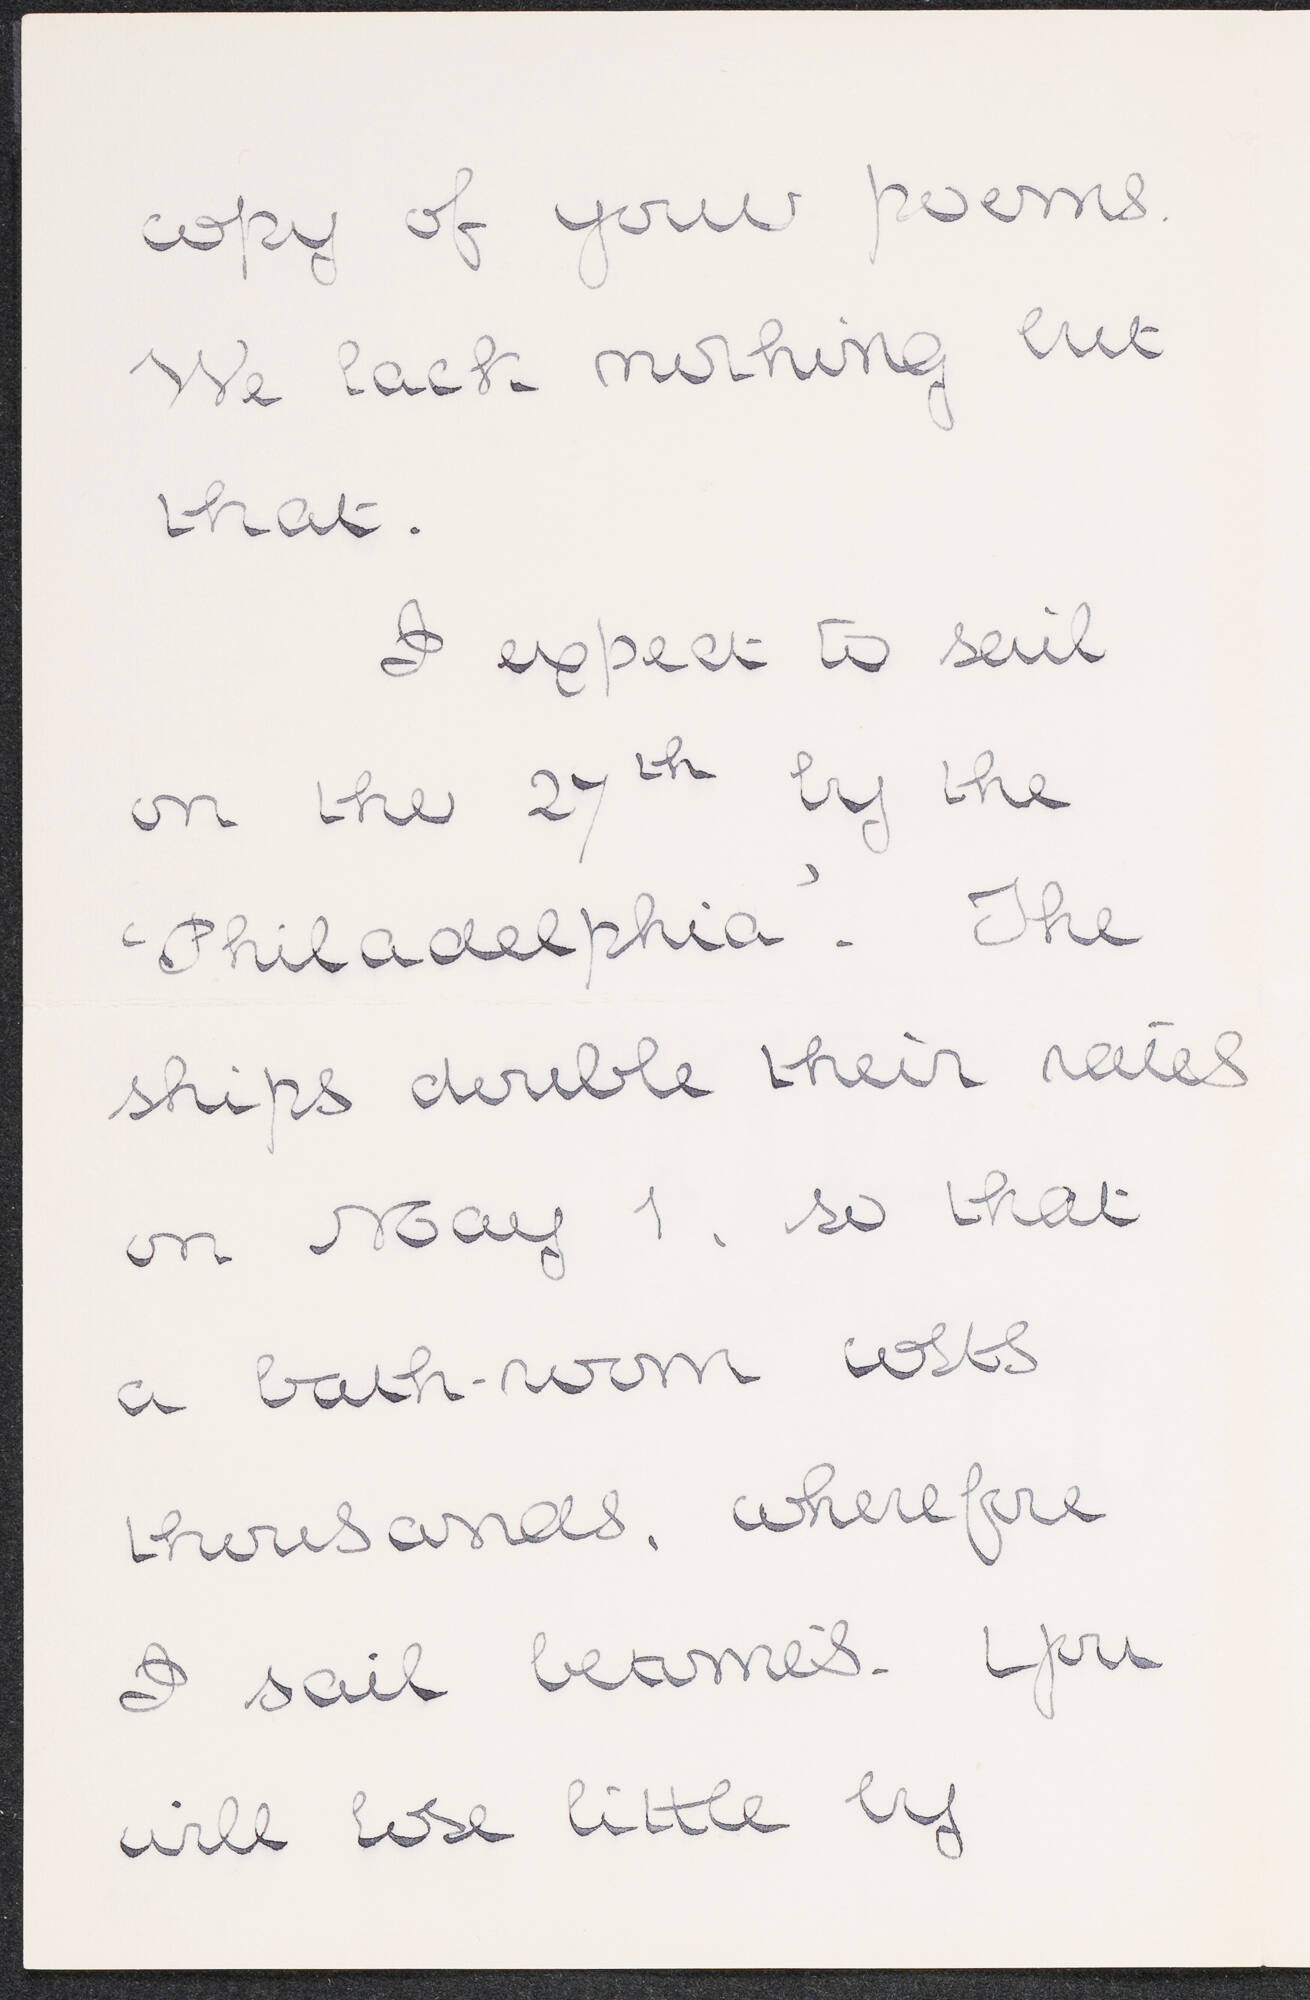 copy of your poems.
We lack nothing but
that.
I expect to sail
on the 27th by the
'Philadelphia'. The
ships double their rates
on May 1, so that
a bath-room costs
thousands, wherefore
I sail betimes. You
will lose little by